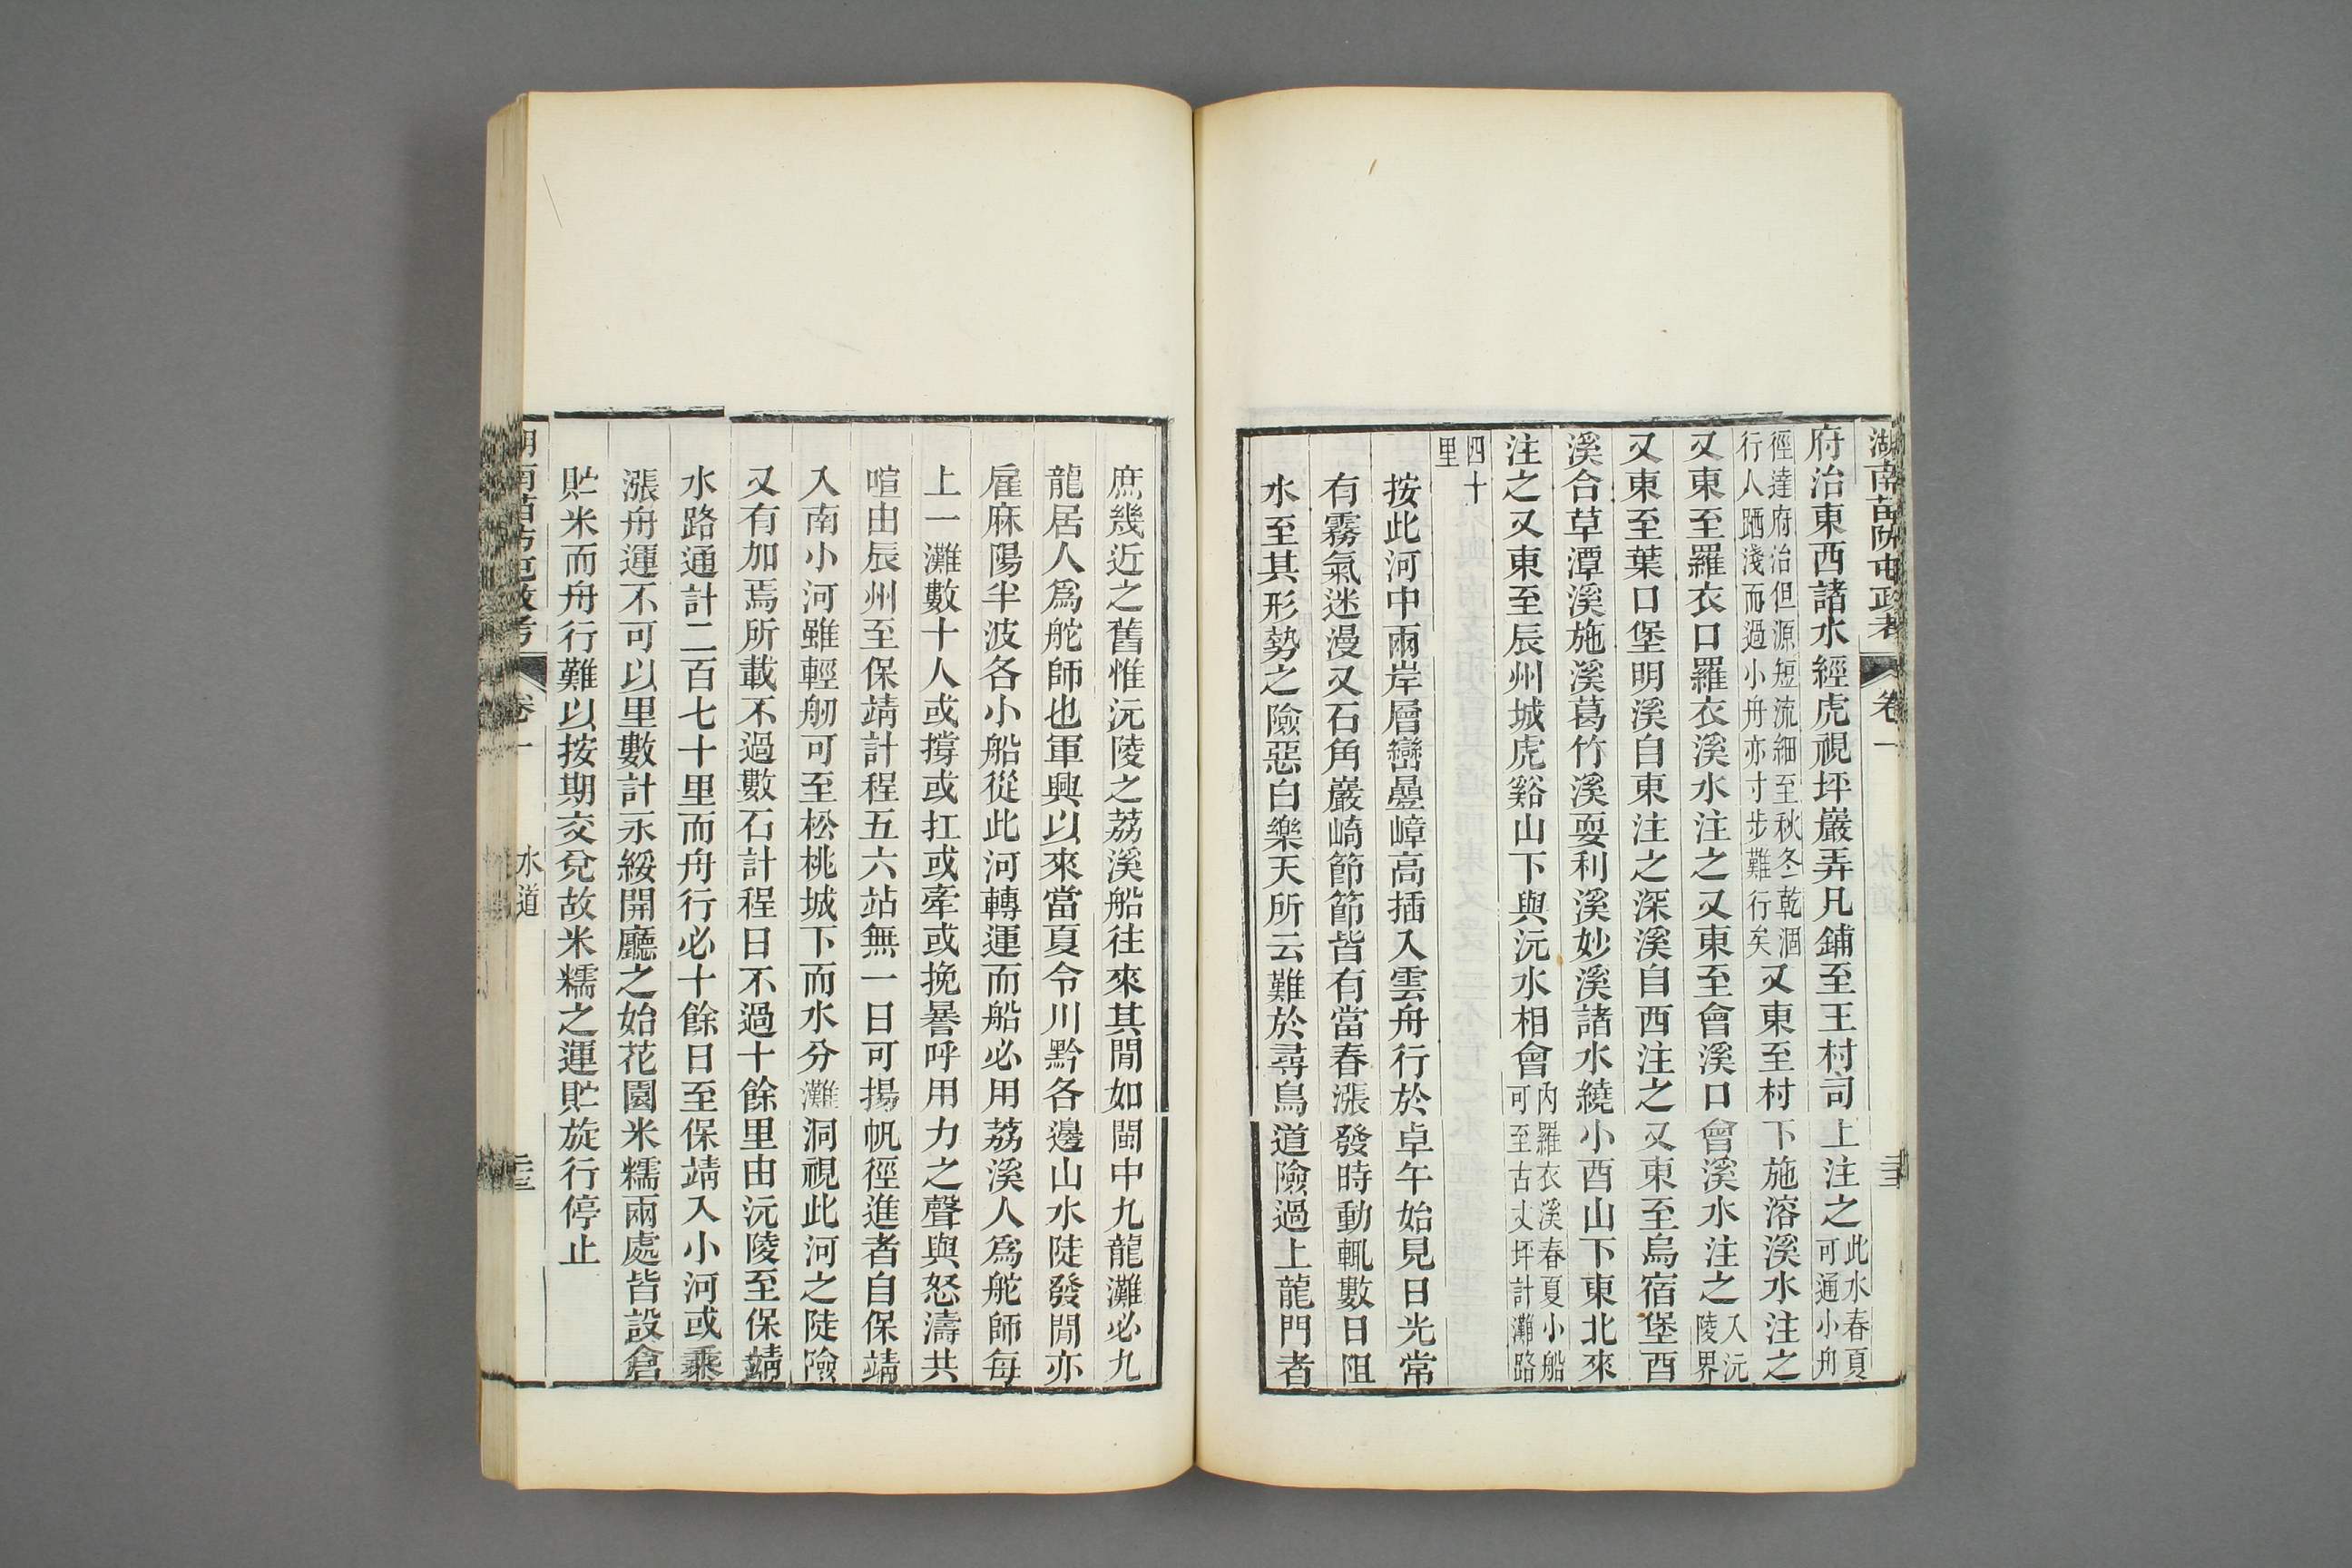 湖南苗防屯政考 卷一
府治東西諸水經虎視坪巖弄凡鋪至王村司上注之此水春夏可通小舟
徑達府治但源短流細至秋冬乾涸行人跴淺而過小舟亦寸步難行矣又東至村下施溶溪水注之
又東至羅衣口羅衣溪水注之又東至會溪口會溪水注之入沅陵界
又東至葉口堡明溪自東注之深溪自西注之又東至烏宿堡酉
溪合草潭溪施溪葛竹溪耍利溪妙溪諸水繞小酉山下東北來
注之又東至辰州城虎谿山下與沅水相會內羅衣溪春夏小船可至古丈坪計灘路
四十里
按此河中兩岸層巒疊嶂高插入雲舟行於卓午始見日光常
有霧氣迷漫又石角巖崎節節皆有當春漲發時動輒數日阻
水至其形勢之險惡白樂天所云難於尋鳥道險過上龍門者
庶幾近之舊惟沅陵之荔溪船往來其閒如閩中九龍灘必九
龍居人爲舵師也軍興以來當夏令川黔各邊山水陡發閒亦
雇麻陽半波各小船從此河轉運而船必用荔溪人爲舵師每
上一灘數十人或撐或扛或牽或挽晷呼用力之聲與怒濤共
喧由辰州至保靖計程五六站無一日可揚帆徑進者自保靖
入南小河雖輕舠可至松桃城下而水分灘洞視此河之陡險
又有加焉所載不過數石計程日不過十餘里由沅陵至保靖
水路通計二百七十里而舟行必十餘日至保靖入小河或乘
漲舟運不可以里數計永綏開廳之始花園米糯兩處皆設倉
貯米而舟行難以按期交兌故米糯之運貯旋行停止
湖南苗防屯政考 卷一 水道